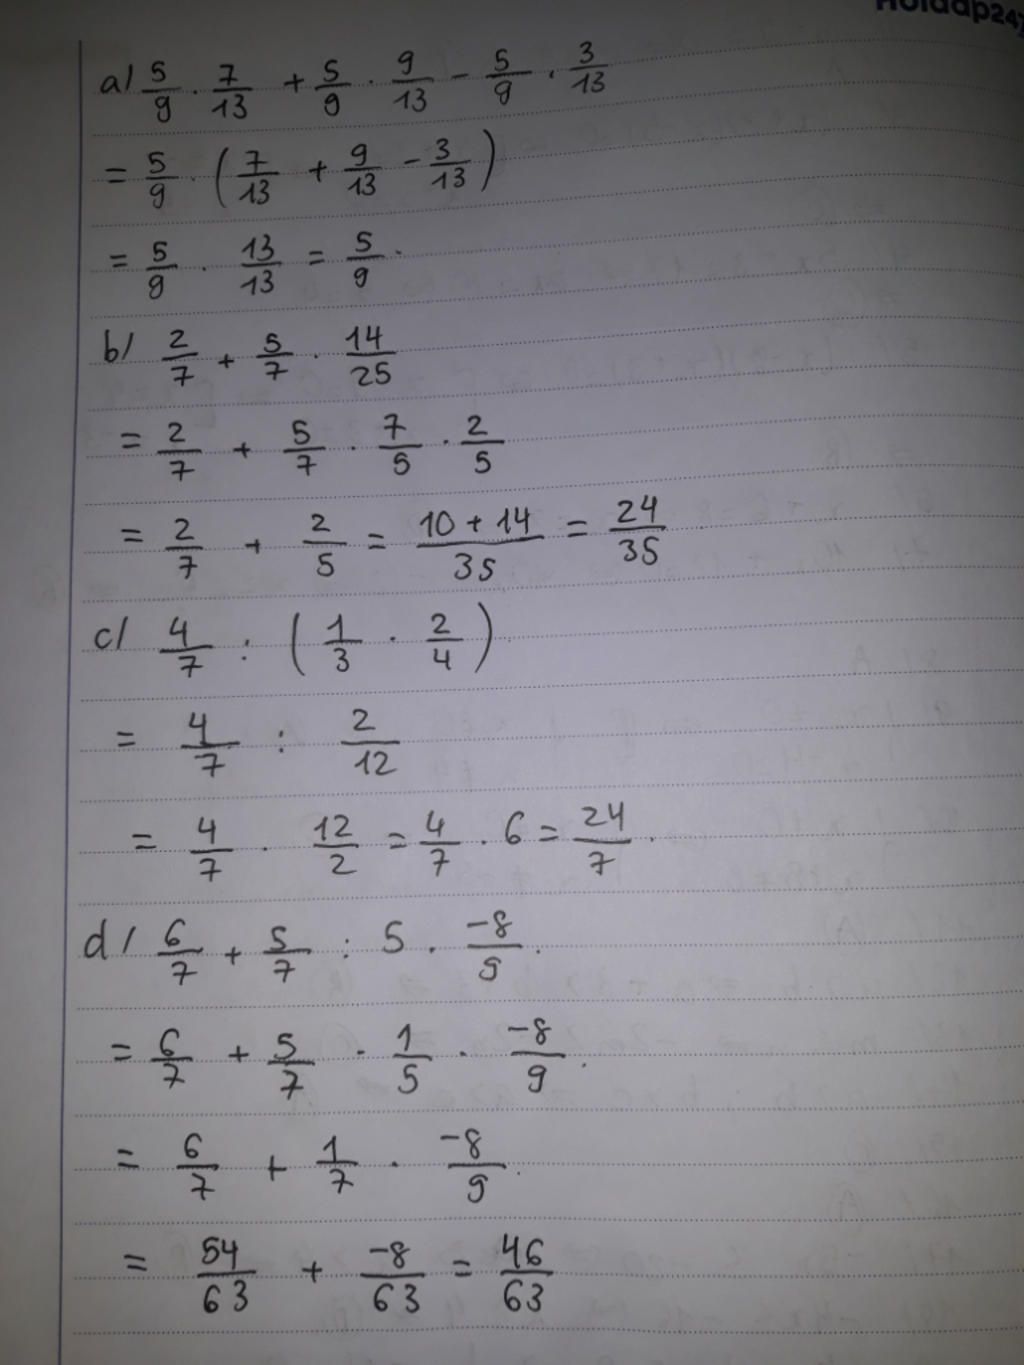 Hoidap247
a/ 5/9 . 7/13 + 5/9 . 9/13 - 5/9 . 3/13
= 5/9 . (7/13 + 9/13 - 3/13)
= 5/9 . 13/13 = 5/9 .
b/ 2/7 + 5/7 . 14/25
= 2/7 + 5/7 . 7/5 . 2/5
= 2/7 + 2/5 = 10 + 14/35 = 24/35
c/ 4/7 : (1/3 . 2/4)
= 4/7 : 2/12
= 4/7 . 12/2 = 4/7 . 6 = 24/7 .
d/ 6/7 + 5/7 : 5 . -8/9 .
= 6/7 + 5/7 . 1/5 . -8/9 .
= 6/7 + 1/7 . -8/9 .
= 54/63 + -8/63 = 46/63